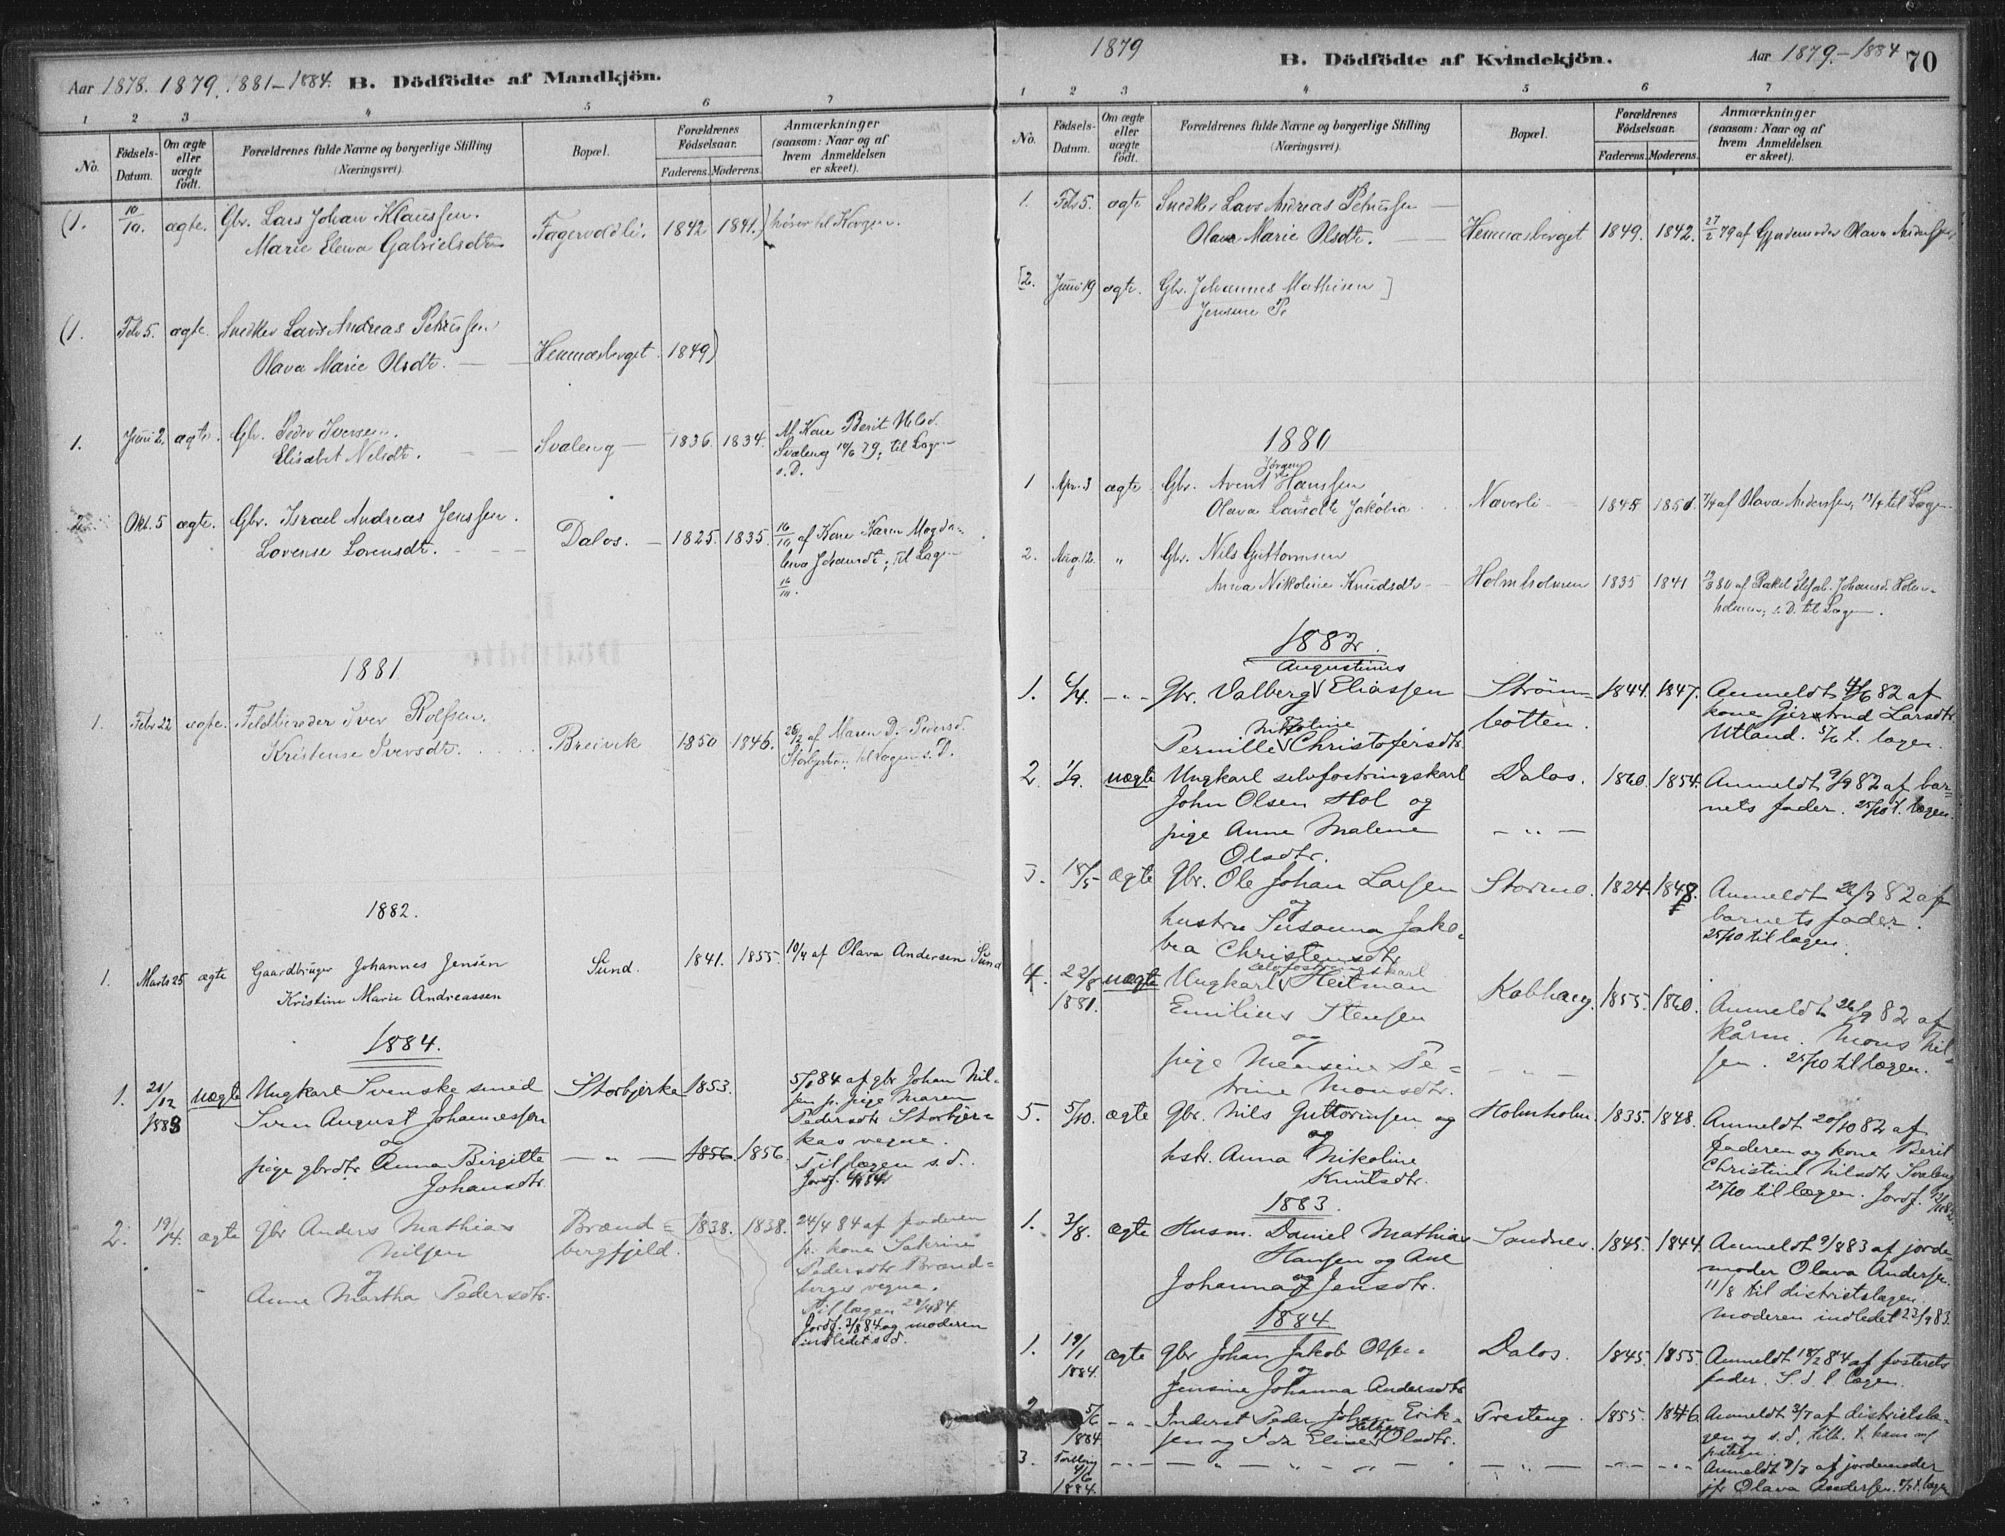 Aar 1878. 1879. 1881-1884. B. Dödfödte af Mandkjön.
1 2 3 4 5 6 7
No. Födsels-Datum. Om ægte eller uægte födt. Forældrenes fulde Navne og borgerlige Stilling (Næringsvei). Bopæl. Forældrenes Födselsaar. Faderens. Moderens. Anmærkninger (saasom: Naar og af hvem Anmeldelsen er skeet).
(1. 10/10. ægte. Gbr. Lars Johan Klaussen. Fagervoldli. 1842 1841.)
Marie Elena Gabrielsdtr
(1. Febr 5. ægte. Snedker Lars Andreas Petersen
Olava Marie Olsdtr. Hemnæsberget. 1849)
1. Juni 2. ægte. Gbr. Peder Iversen.
Elisabet Nilsdtr. Svaleng 1836. 1834. Af Kone Berit Nilsd.
Svaleng 14/6 79, til Lægen
s. D.
2. Okt. 5 ægte. Gbr. Israel Andreas Jenssen.
Lorense Lorensdtr. Dalos. 1825. 1835. 16/10 af Kone Karen Magda-
lena Johansdt; til Lægen
16/10.
1881
1. Febr 22 ægte. Feldbereder Iver Rolfsen.
Kristense Iversdtr. Breivik 1850 1846. 26/2 af Maren D. Peversd.
til Lægen s. D.
1882.
1. Marts 25 ægte Gaardbruger Johannes Jensen Sund. 1841. 1855. 10/4 af Olava Andersen Sund
Kristine Marie Andreassen
1884.
1. 21/12 1883 uægte Ungkarl Svenske smed Storbjerka 1853. 5/1 84 af gbr Johan Nil-
sen p. pige Maren
Sven August Johannessen Pedersdtr Storbjer-
og kas vegne.
pige gbrdtr. Anna Birgitte — " — 1856. 1856. Til lægen s. d.
Johansdtr.
2. 19/4. ægte gbr Anders Mathias Brænd= 1838. 1838. 24/4 84 af faderen
Nilsen bergfjeld. p. kone Sakrine
og Pedersdtr Brænd-
Anne Martha Pedersdtr. bergs vegne.
Til lægen 24/4 84.
Jordf. 3/8 84 og moderen
indledet s. d.
1879 B. Dödfödte af Kvindekjön. Aar 1879.-1884 70
1 2 3 4 5 6 7
No. Födsels-Datum. Om ægte eller uægte födt. Forældrenes fulde Navne og borgerlige Stilling (Næringsvei). Bopæl. Forældrenes Födselsaar. Faderens. Moderens. Anmærkninger (saasom: Naar og af hvem Anmeldelsen er skeet).
1. Febr 5. ægte Snedker Lars Andreas Petersen
Olava Marie Olsdtr. Hemnæsberget 1849. 1842. 27/2 79 af Gjordemoder Olava Andersen
[2. Juni 19 ægte. Gbr. Johannes Mathisen ]
Jensine P
1880
Jörgen
1 Apr. 3 ægte Gbr. Arent Hanssen
Olava Larsdtr Jakobia Naverli 1845 1851. 7/4 af Olava Anderssen, 13/4 til Lægen
2. Aug. 12. " Gbr. Nils Guttormsen
Anna Nikoline Knudsdtr Holmholmen 1835 1841 af Rakel Johansd. Holm-
holmen, s. D. til Lægen.
1882.
Augustinus
1. 6/4. — " — Gbr. Valberg Eliassen Ström= 1844. 1847. Anmeldt 4/6 82 af
Nikoline botten. kone Gjertrud Larsdtr
Pernille Christofersdtr. Utland. 5/6 t. lægen.
2. 1/9. uægte Ungkarl selvfostringskarl Dalos. 1860. 1854. Anmeldt 9/9 82 af bar=
John Olsen Hol og nets fader. 25/10 t. lægen.
pige Anne Malene — " —
Olsdtr.
3. 18/5 ægte Gbr. Ole Johan Larsen Stormo. 1824. 1848. Anmeldt 24/9 82 af
og barnets fader.
hustru Susanna Jako- 25/10 til lægen.
bea Christensdtr
selvfostringskarl
4. 22/8 1881. uægte Ungkarl Heitman Kobhaug. 1855. 1860. Anmeldt 26/9 82 af
Emilius Stensen kårm. Mons Nil-
og sen. 25/10 til lægen.
pige Mensine Pe- — " —
trine Monsdtr.
5. 5/10. ægte Gbr. Nils Guttormsen og Holmholm. 1835. 1848. Anmeldt 20/10 82 af
og faderen og kone Berit
hstr. Anna Nikoline Christine Nilsdtr Svaleng
Knutsdtr. 25/10 til lægen. Jordf.
1883.
1. 3/8. ægte Husm. Daniel Mathias Sandnes. 1845. 1844. Anmeldt 9/8 83 af jorde
Hansen og Ane moder Olava Andersen.
Johanna Jensdtr. 11/8 til districtslægen.
moderen indledet 23/9 83.
1884
1. 19/1 1884. ægte Gbr Johan Jakob Olsen Dalos. 1845. 1855. Anmeldt 18/2 84 af fosterets
og fader. S. d. t. lægen.
Jensine Johanna Andersdtr
2 5/6 1884 — " — Inderst Peder Johan Erik- Bresteng. 1855. 1846. Anmeldt 3/7 af districtslæ-
sen og Ida Elise Olsdtr. gen og s. d.
3. Tvilling 4/6 1884. — " — Anmeldt 3/7 af jordemoder
jfr Olava Andersen. t. lægen